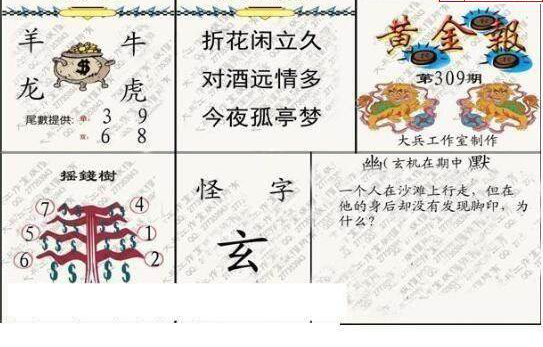 羊 牛
龙 虎
尾數提供: 单: 3 9
双: 6 8
折花闲立久
对酒远情多
今夜孤亭梦
黄金報
第309期
大兵工作室制作
摇錢樹
⑦ ④
⑤ ①
⑥ ②
怪 字
玄
幽(玄机在期中 默
一个人在沙滩上行走，但在
他的身后却没有发现脚印，为
什么?